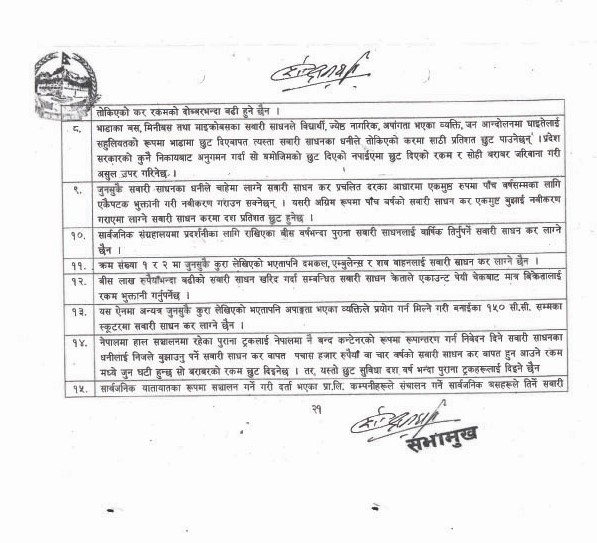 तोकिएको कर रकमको दोब्बरभन्दा बढी हुने छैन ।
८. भाडाका बस, मिनीबस तथा माइक्रोबसका सवारी साधनले विद्यार्थी, ज्येष्ठ नागरिक, अपांगता भएका व्यक्ति, जन आन्दोलनमा घाइतेलाई
सहुलियतको रूपमा भाडामा छुट दिएबापत त्यस्ता सवारी साधनका धनीले तोकिएको करमा साठी प्रतिशत छुट पाउनेछन् । प्रदेश
सरकारको कुनै निकायबाट अनुगमन गर्दा सो बमोजिमको छुट दिएको नपाईएमा छुट दिएको रकम र सोही बराबर जरिवाना गरी
असुल उपर गरिनेछ ।
९. जुनसुकै सवारी साधनका धनीले चाहेमा लाग्ने सवारी साधन कर प्रचलित दरका आधारमा एकमुष्ठ रुपमा पाँच वर्षसम्मका लागि
एकैपटक भुक्तानी गरी नबीकरण गराउन सक्नेछन् । यसरी अग्रिम रूपमा पाँच वर्षको सवारी साधन कर एकमुष्ट बुझाई नबीकरण
गराएमा लाग्ने सवारी साधन करमा दश प्रतिशत छुट हुनेछ ।
१०. सार्वजनिक संग्रहालयमा प्रदर्शनीका लागि राखिएका बीस वर्षभन्दा पुराना सवारी साधनलाई वार्षिक तिर्नुपर्ने सवारी साधन कर लाग्ने
छैन ।
११. क्रम संख्या १ र २ मा जुनसुकै कुरा लेखिएको भएतापनि दमकल, एम्बुलेन्स र शब बाहनलाई सवारी साधन कर लाग्ने छैन ।
१२. बीस लाख रुपैयाँभन्दा बढीको सवारी साधन खरिद गर्दा सम्बन्धित सवारी साधन क्रेताले एकाउण्ट पेयी चेकबाट मात्र बिक्रेतालाई
रकम भुक्तानी गर्नुपर्नेछ ।
१३. यस ऐनमा अन्यत्र जुनसुकै कुरा लेखिएको भएतापनि अपाङ्गता भएका व्यक्तिले प्रयोग गर्न मिल्ने गरी बनाईका १५० सी.सी. सम्मका
स्कूटरमा सवारी साधन कर लाग्ने छैन ।
१४. नेपालमा हाल सञ्चालनमा रहेका पुराना ट्रकलाई नेपालमा नै बन्द कन्टेनरको रूपमा रूपान्तरण गर्न निवेदन दिने सवारी साधनका
धनीलाई निजले बुझाउनु पर्ने सवारी साधन कर बापत पचास हजार रुपैयाँ वा चार वर्षको सवारी साधन कर वापत हुन आउने रकम
मध्ये जुन घटी हुन्छ सो बराबरको रकम छुट दिइनेछ । तर, यस्तो छुट सुविधा दश वर्ष भन्दा पुराना ट्रकहरूलाई दिइने छैन
१५. सार्वजनिक यातायातका रूपमा सञ्चालन गर्ने गरी दर्ता भएका प्रा.लि. कम्पनीहरूले संचालन गर्ने सार्वजनिक बसहरूले तिर्ने सवारी
२१
सभामुख